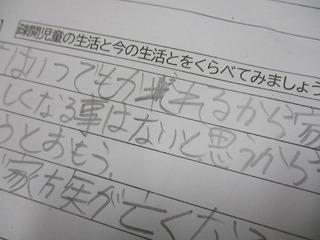 】疎開児童の生活と今の生活とをくらべてみましょう
はいつでも力 されるから家
しくなる事はないと思うから
うとおもう。
家族が亡くなっ